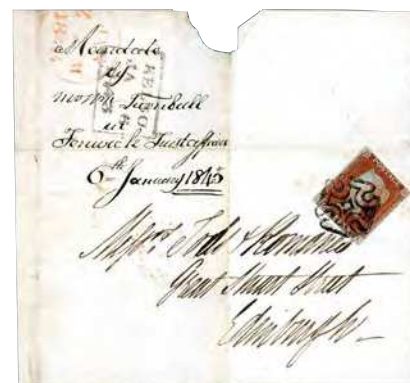 Mandate
by
Messrs Turnbull
in
Fenwick Trust affairs
6th January 1845
KELSO
JA
Messrs Tod & Romanes
Great Stuart Street
Edinburgh